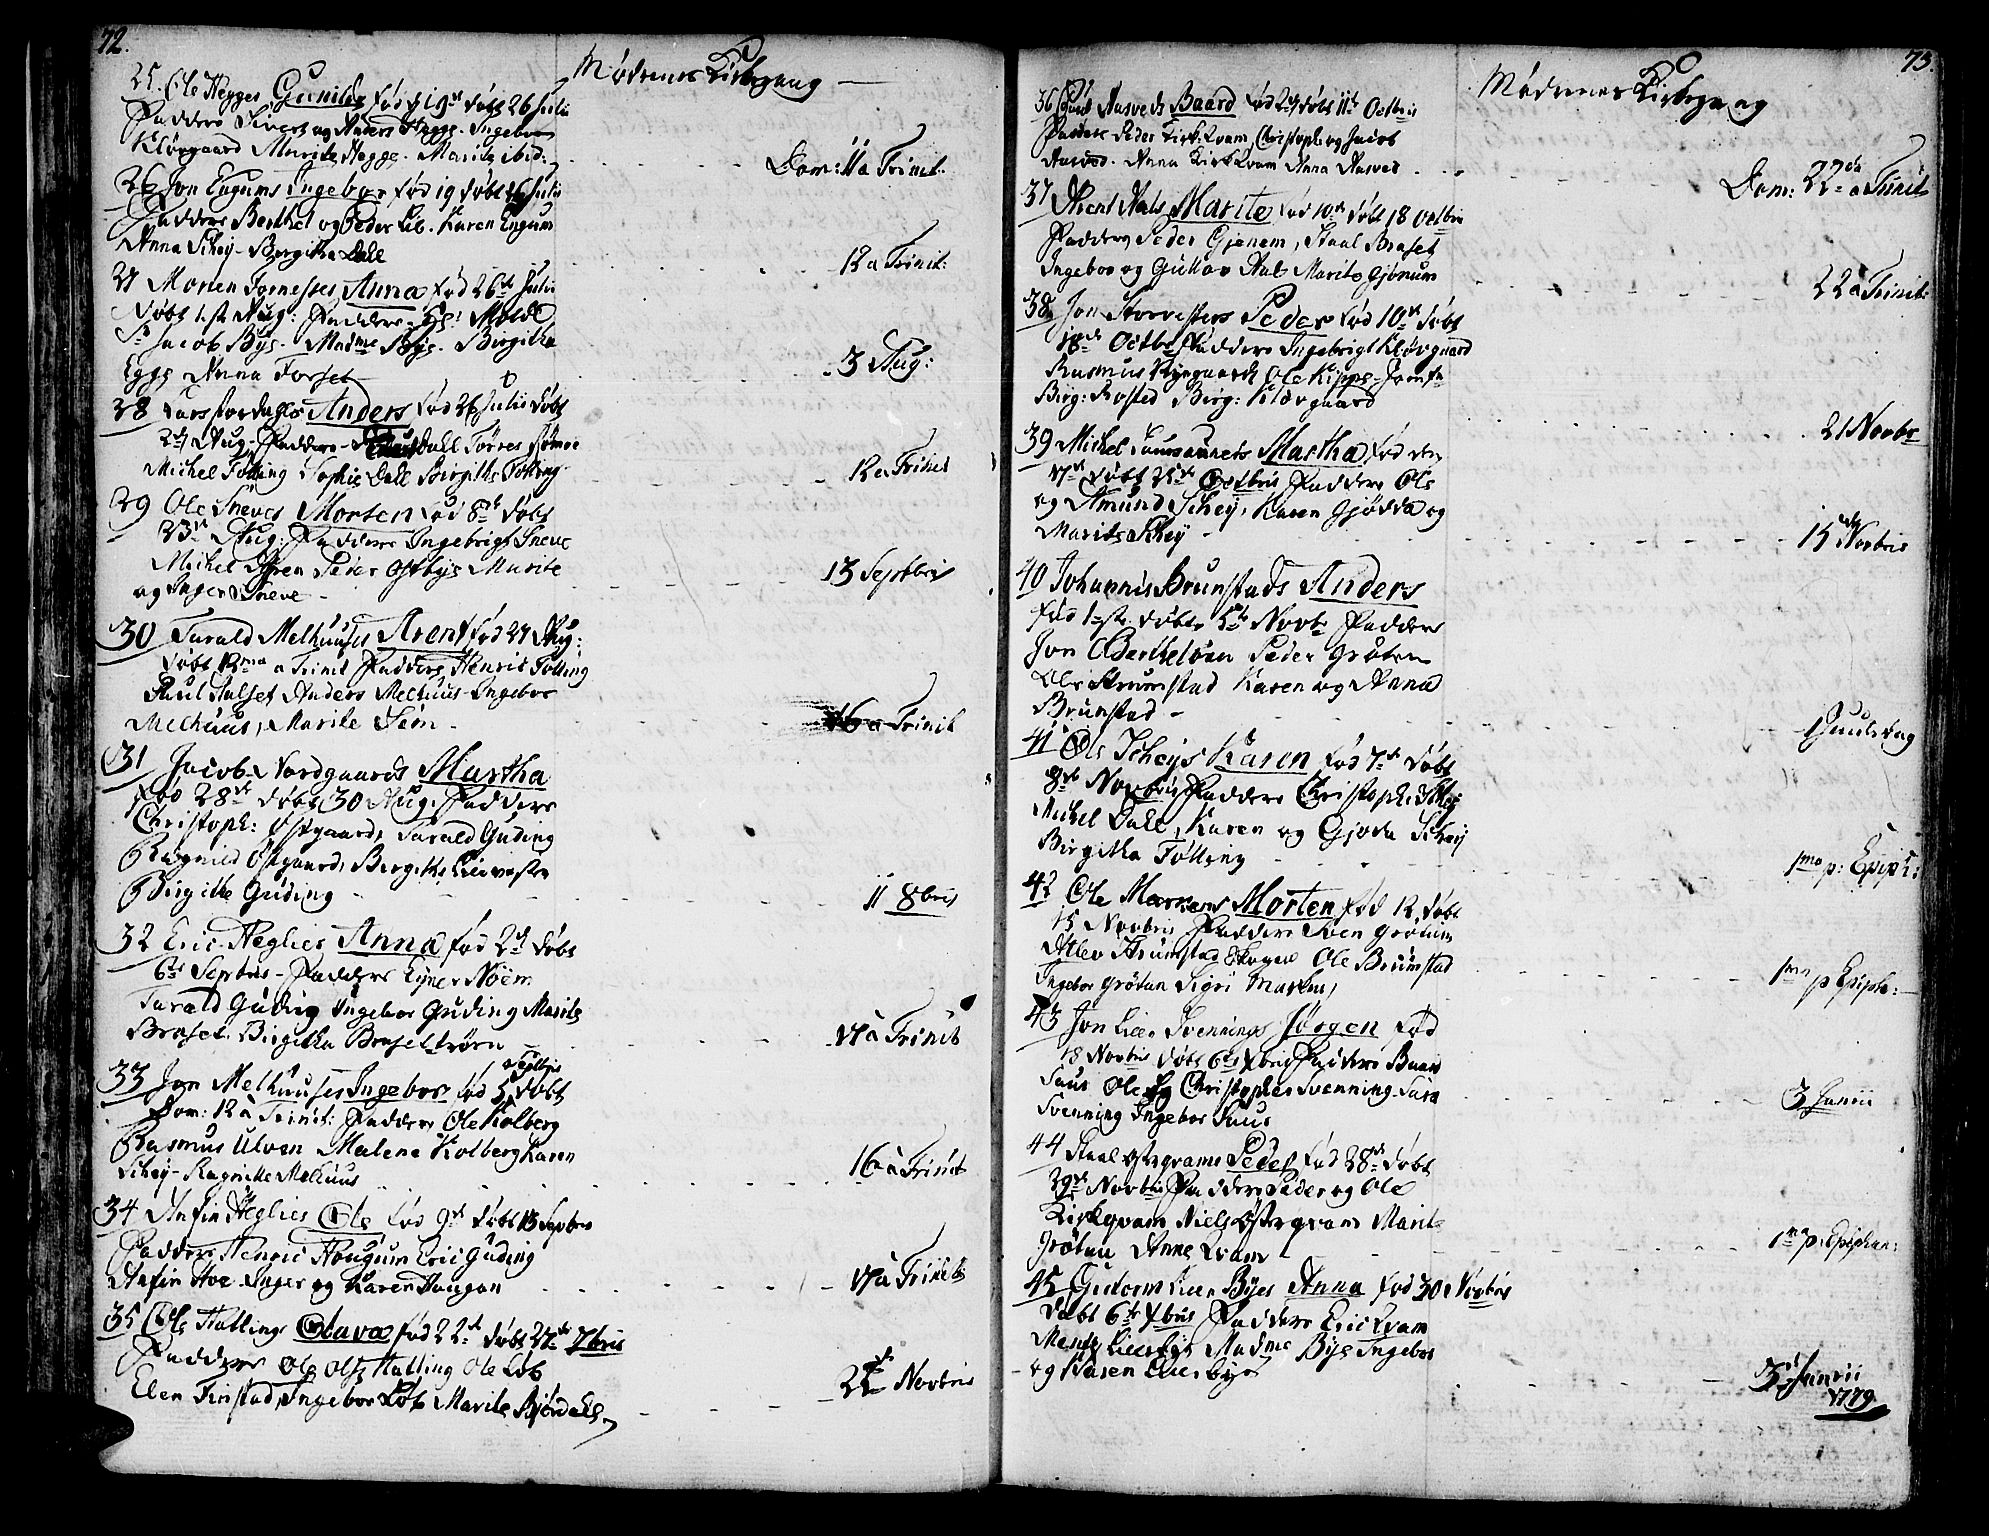 72.
Mødrenes Kirkegang
25. Ole Hegges Gunild født 19de døbt 26 Julii
Faddere Sivert og Anders Hegge. Ingebor
Kløvgaard Marite Hegge. Marite ibid:
Dom: 11 a Trinit:
26 Jon Engums Ingebor født 19 døbt 26 Julii
Faddere Berthel og Peder Lib. Karen Engum
Anna Schey. Birgitha Dall
12 a Trinit:
27 Morten Fornesses Anna fød 26de Julii
døbt 1ste Aug: Faddere Hr: Molde
Sr Jacob Bye. Madme Bye. Birgitha
Egge Anna Forset
3 Aug:
28 Lars Anders fød 26 Julii døbt
2de Aug. Faddere Dall Torres
Michel Følling Sophie Dall Birgitha Følling
12 a Trinit
29 Ole Sneves Morten fød 8de døbt
23de Aug: Faddere Ingebrigt Sneve
Michel Peder Østbye Marite
og Inger Sneve
13 Septbris
30 Tarald Melhuuses Arent fød 27 Aug:
døbt 12ma a Trinit Faddere Henric Følling
Paul Halset Anders Melhuus Ingebor
Melhuus, Marite Sem
16 a Trinit
31 Jacob Nordgaards Martha
fød 28de døbt 30 Aug: Faddere
Christoph: Østgaard, Tarald Guding
Ragnild Østgaard, Birgithe
Birgithe Guding
11 8bris
32 Eric Heglies Anna fød 2de døbt
6te Septbris. Faddere Eyner Nøem
Tarald Guding Ingebor Guding Marite
Braset. Birgitha Braset
17 a Trinit
33 Jon Melhuuses Ingebor fød 5 Septbris døbt
Dom: 12 a Trinit: Faddere Ole Kolberg
Rasmus Ulven Malene Kolberg Karen
Schey. Melhuus
16 a Trinit
34 Anfin Heglies Ole fød 9de døbt 13 Septbris
Faddere Henric Haugum Eric Guding
Anfin Hoe Inger og Karen Haugan
17 a Trinit
35 Ole Hallings Olava fød 22de døbt 27de 7bris
Faddere Ole Ols: Halling Ole Løb
Elen Finstad, Ingebor Løb Marite
22de Novbris
73.
Mødrenes Kirkegang
36 Aasveds Baard fød 2de døbt 11te Octbris
Faddere Peder Kirk: Qvam, Christoph: og Jacob
Aasved. Anna Kirk Qvam Anna Aasved
Dom: 22da a Trinit
37 Arent Aals Marite fød 10de døbt 18 Octbris
Faddere Peder Gjenem, Staal Braset
Ingebor og Gullov Aal Marite Gjønum
22 a Trinit:
38 Jon Peder fød 10de døbt
18de Octbr Faddere Ingebrigt Kløvgaard
Rasmus Ole Kippe Jomfr
Birg: Rosted Birg: Kløvgaard
21 Novbr
39 Michel Martha fød den
17de døbt 25de Octbris Faddere Ole
og Amund Schey, Karen Gjødda og
Marite Schey
15de Novbris
40 Johannis Brunstads Anders
fød 1ste døbt 5te Novbr Faddere
Jon Berthelsen Peder Grøtem
Ole Strumstad Karen og Anna
Brunstad
1 Juuledag
41 Ole Scheys Karen fød 7de døbt
8de Novbris Faddere Christoph: Schey
Michel Dall, Karen og Gjøda Schey
Birgitha Følling
1ma p: Epiph:
42 Ole Morten fød 12 døbt
15 Novbris Faddere Sven Grøtum
Strumstad Ole Brunstad
Ingebor Grøtan Sigri
1ma p Epiph:
43 Jon Lien Svennings Jørgen fød
18 Novbris døbt 6te Xbris Faddere Baard
Saur Ole og Christopher Svenning. Sara
Svenning Ingebor Saur
3 Janrii
44 Staal Østqvams Peder fød 28de døbt
29de Novbris Faddere Peder og Ole
Kirkqvam Niels Østerqvam Marit
Grøtan Anne Qvam
1ma p: Epiphan:
45 Gutorm Lien Byes Anna fød 30 Novbris
døbt 6te Xbris Faddere Eric Qvam
Mentz Lien Bye Madme Bye Ingebor
og Karen Lien bye
3 Janrii
1779.